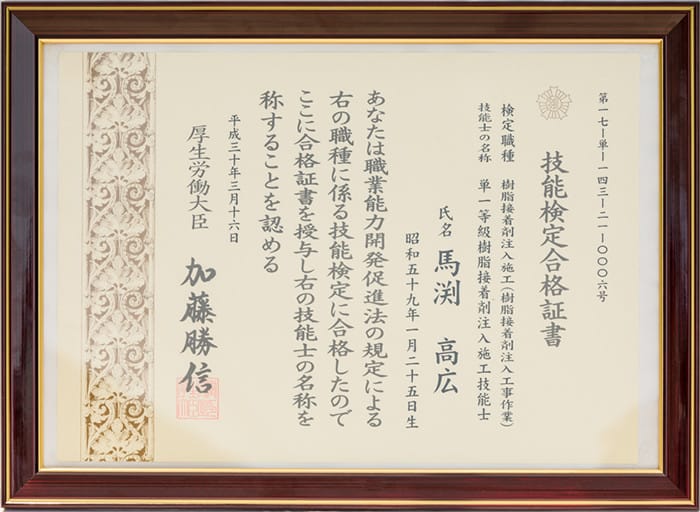 第一七ー単ー一四三ー二一ー〇〇〇六号
技能検定合格証書
検定職種 樹脂接着剤注入施工(樹脂接着剤注入工事作業)
技能士の名称 単一等級樹脂接着剤注入施工技能士
氏名 馬渕 高広
昭和五十九年一月二十五日生
あなたは職業能力開発促進法の規定による
右の職種に係る技能検定に合格したので
ここに合格証書を授与し右の技能士の名称を
称することを認める
平成三十年三月十六日
厚生労働大臣 加藤勝信